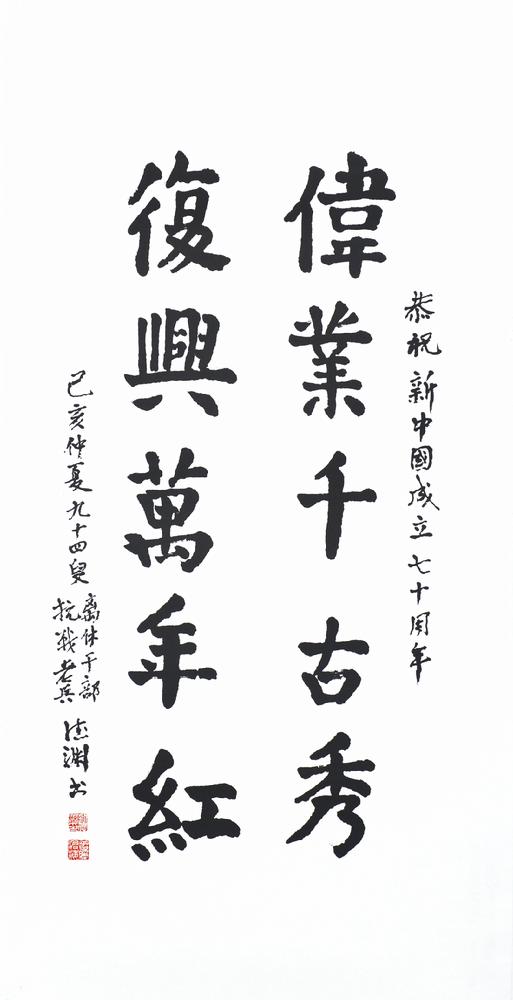 恭祝新中國成立七十周年
偉業千古秀
復興萬年紅
己亥仲夏九十四叟
离休干部
抗戰老兵
德渊书